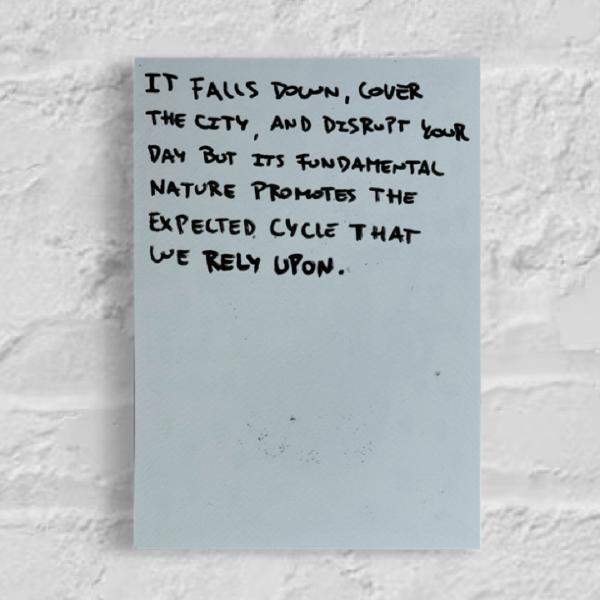 IT FALLS DOWN, COVER
THE CITY, AND DISRUPT YOUR
DAY BUT ITS FUNDAMENTAL
NATURE PROMOTES THE
EXPECTED CYCLE THAT
WE RELY UPON.